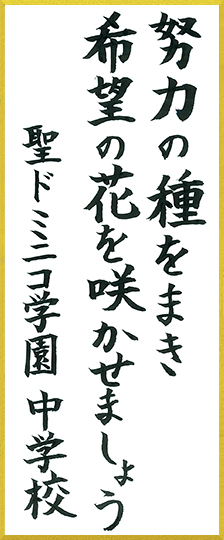 努力の種をまき、
希望の花を咲かせましょう
聖ドミニコ学園 中学校